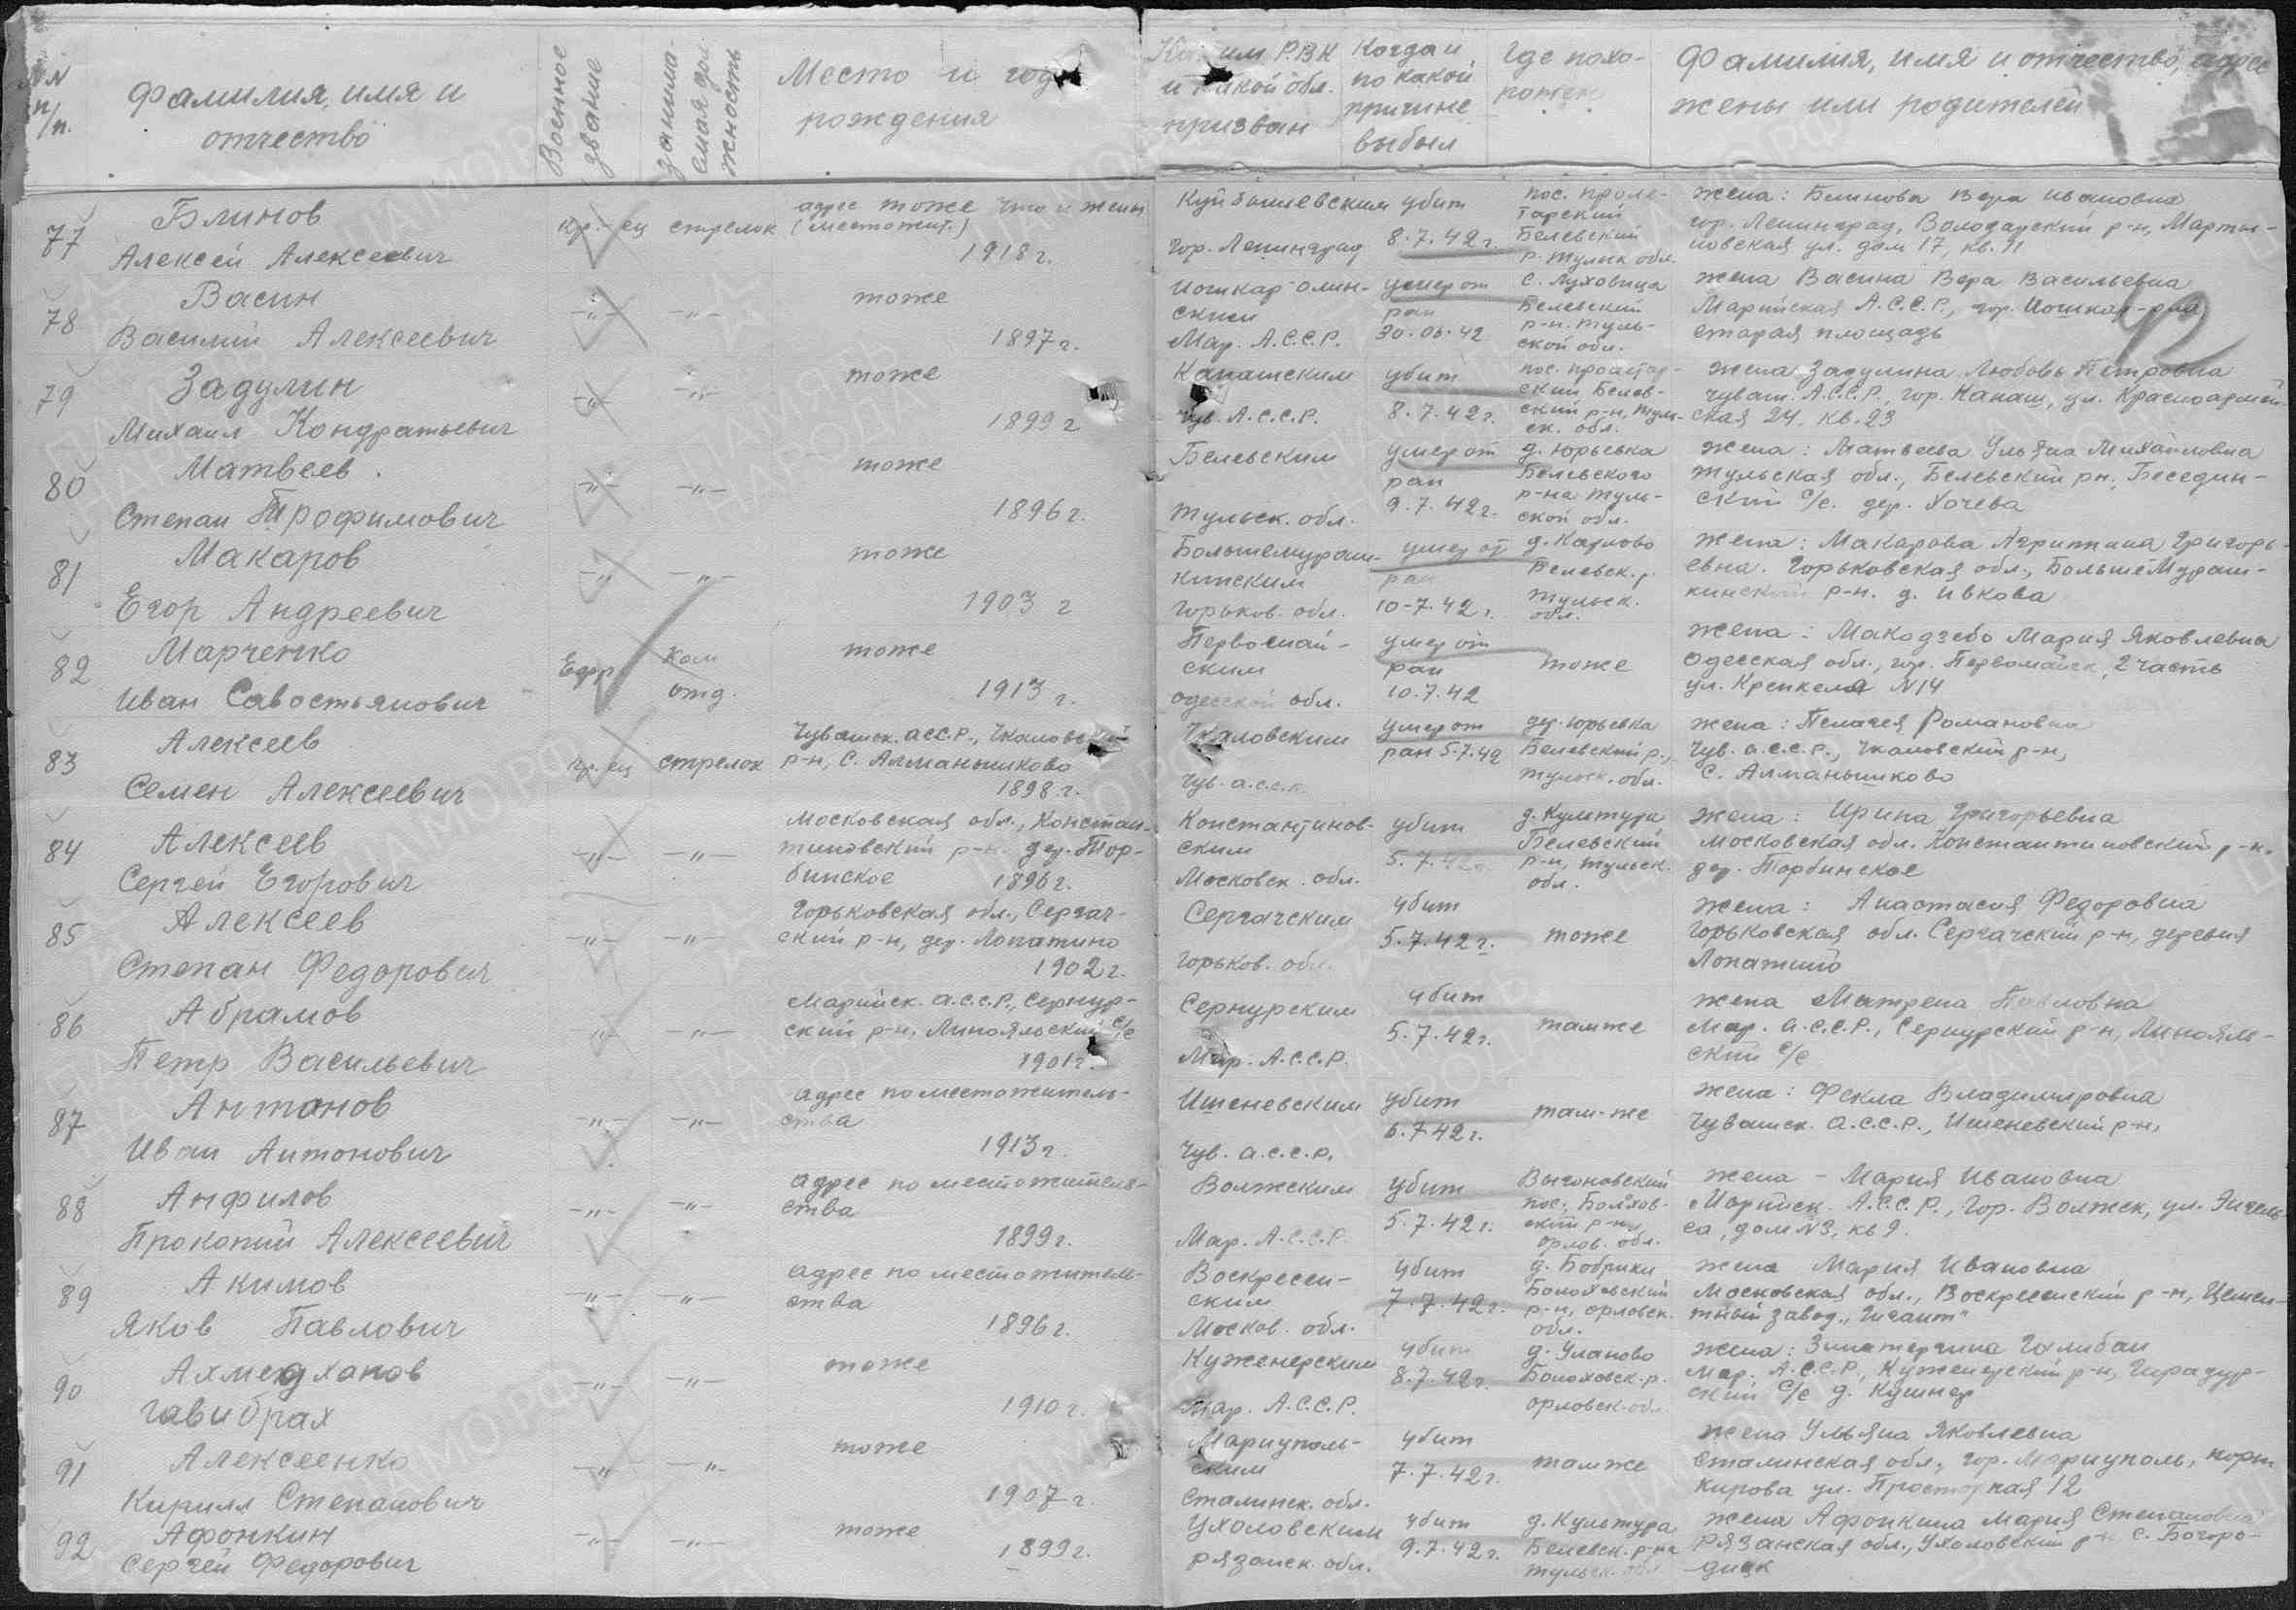 №№ п/п.
Фамилия, имя и отчество
Военное звание
занима-
емая дол
жность
Место и год рождения
Каким Р.В.К
и какой обл.
призван
Когда и
по какой
причине
выбыл
Где похо-
ронен
Фамилия, имя и отчество, адрес
жены или родителей
42
77
Блинов
Алексей Алексеевич
кр-ец стрелок
адрес тоже что и жены
(местожит.)
1918 г.
Куйбышевским
гор. Ленинград
убит
8.7.42 г.
пос. Проле-
тарский
Белевский
р. Тульск обл.
жена: Блинова Вера Ивановна
гор. Ленинград, Володарский р-н, Марты-
новская ул. дом 17, кв. 11
78
Васин
Василий Алексеевич
-"- -"-
тоже
1897 г.
Йошкар-олин-
ским
Мар. А.С.С.Р.
умер от
ран
30.06.42
с. Луховица
Белевский
р-н. Туль-
ской обл.
жена Васина Вера Васильевна
Марийская А.С.С.Р., гор. Йошкар-ола
старая площадь
79
Задулин
Михаил Кондратьевич
-"- -"-
тоже
1899 г
Канашским
Чув. А.С.С.Р.
убит
8.7.42 г.
пос. пролетар-
ский Белев-
ский р-н, Туль-
ск. обл.
жена Задулина Любовь Петровна
Чуваш. А.С.С.Р., гор. Канаш, ул. Красноармей-
ская 24. кв. 23
80
Матвеев
Степан Трофимович
-"- -"-
тоже
1896 г.
Белевским
Тульск. обл.
умер от
ран
9.7.42 г.
д. Юрьевка
Белевского
р-на Туль-
ской обл.
жена: Матвеева Ульяна Михайловна
Тульская обл., Белевский рн, Беседин-
ский с/с. дер. Хочева
81
Макаров
Егор Андреевич
-"- -"-
тоже
1903 г
Большемураш-
кинским
Горьков. обл.
умер от
ран
10-7.42 г.
д. Карлово
Белевск. р.
Тульск.
обл.
жена: Макарова Агрипина Григорь-
евна. Горьковская обл., БольшеМураш-
кинский р-н. д. Ивкова
82
Марченко
Иван Савостьянович
Ефр.
Ком
отд.
тоже
1913 г.
Первомай-
ским
Одесской обл.
умер от
ран
10.7.42
тоже
жена: Макодзебо Мария Яковлевна
Одесская обл., гор. Первомайск, 2 часть
ул. Кренкеля N14
83
Алексеев
Семен Алексеевич
кр. ец стрелок
Чувашск. АСС.Р., Чкаловский
р-н, с. Алманышково
1898 г.
Чкаловским
Чув. а.с.с.р.
умер от
ран 5.7.42
дер. Юрьевка
Белевский р.,
Тульск. обл.
жена: Пелагея Романовна
Чув. а.с.с.р., Чкаловский р-н,
с. Алманышково
84
Алексеев
Сергей Егорович
-"- -"-
Московская обл., Констан-
тиновский р-н. дер. Тор-
бинское 1896 г.
Константинов-
ским
Московск. обл.
убит
5.7.42 г.
д. Культура
Белевский
р-н, Тульск.
обл.
жена: Ирина Григорьевна
Московская обл. Константиновский р-н.
дер. Торбинское
85
Алексеев
Степан Федорович
-"- -"-
Горьковская обл., Сергач-
ский р-н, дер. Лопатино
1902 г.
Сергачским
Горьков. обл.
убит
5.7.42 г.
тоже
жена: Анастасия Федоровна
Горьковская обл. Сергачский р-н, деревня
Лопатино
86
Абрамов
Петр Васильевич
-"- -"-
Марийск. а.с.с.р., Сернур-
ский р-н, Линояльский с/с
1901 г.
Сернурским
Мар. А.С.С.Р.
убит
5.7.42 г.
тамже
жена Матрена Павловна
Мар. а.с.с.р., Сернурский р-н, Линояль-
ский с/с
87
Антонов
Иван Антонович
-"- -"-
адрес по местожитель-
ства
1913 г.
Ишеневским
Чув. а.с.с.р.
убит
6.7.42 г.
там-же
жена: Фекла Владимировна
Чувашск. а.с.с.р., Ишеневский р-н,
88
Анфилов
Прокопий Алексеевич
-"- -"-
адрес по местожитель-
ства
1899 г.
Волжским
Мар. А.С.С.Р.
убит
5.7.42 г.
Выгоновский
пос., Болхов-
ский р-н,
орлов. обл.
жена - Мария Ивановна
Марийск. А.С.С.Р., гор. Волжск, ул. Энгель-
са, дом N3, кв 9.
89
Акимов
Яков Павлович
-"- -"-
адрес по местожитель-
ства
1896 г.
Воскресен-
ским
Москов. обл.
убит
7.7.42 г.
д. Бобрики
Болховский
р-н, орловск.
обл.
жена Мария Ивановна
Московская обл., Воскресенский р-н, Цемен-
тный завод „Гигант"
90
Ахмедханов
Гавибрах
-"- -"-
тоже
1910 г.
Куженерским
Мар. А.С.С.Р.
убит
8.7.42 г.
д. Уланово
Болховск. р.
орловск. обл.
жена:
Мар. А.С.С.Р., Куженерский р-н,
ский с/с д. Кушнер
91
Алексеенко
Кирилл Степанович
-"- -"-
тоже
1907 г.
Мариуполь-
ским
Сталинск. обл.
убит
7.7.42 г.
тамже
жена Ульяна Яковлевна
Сталинская обл., гор. Мариуполь, порт
Кирова ул. Просторная 12
92
Афонкин
Сергей Федорович
-"- -"-
тоже
1899 г.
Ухоловским
Рязанск. обл.
убит
9.7.42 г.
д. Культура
Белевск. р-на
Тульск. обл
жена Афонкина Мария Степановна
Рязанская обл., Ухоловский р-н с. Богоро-
дицк